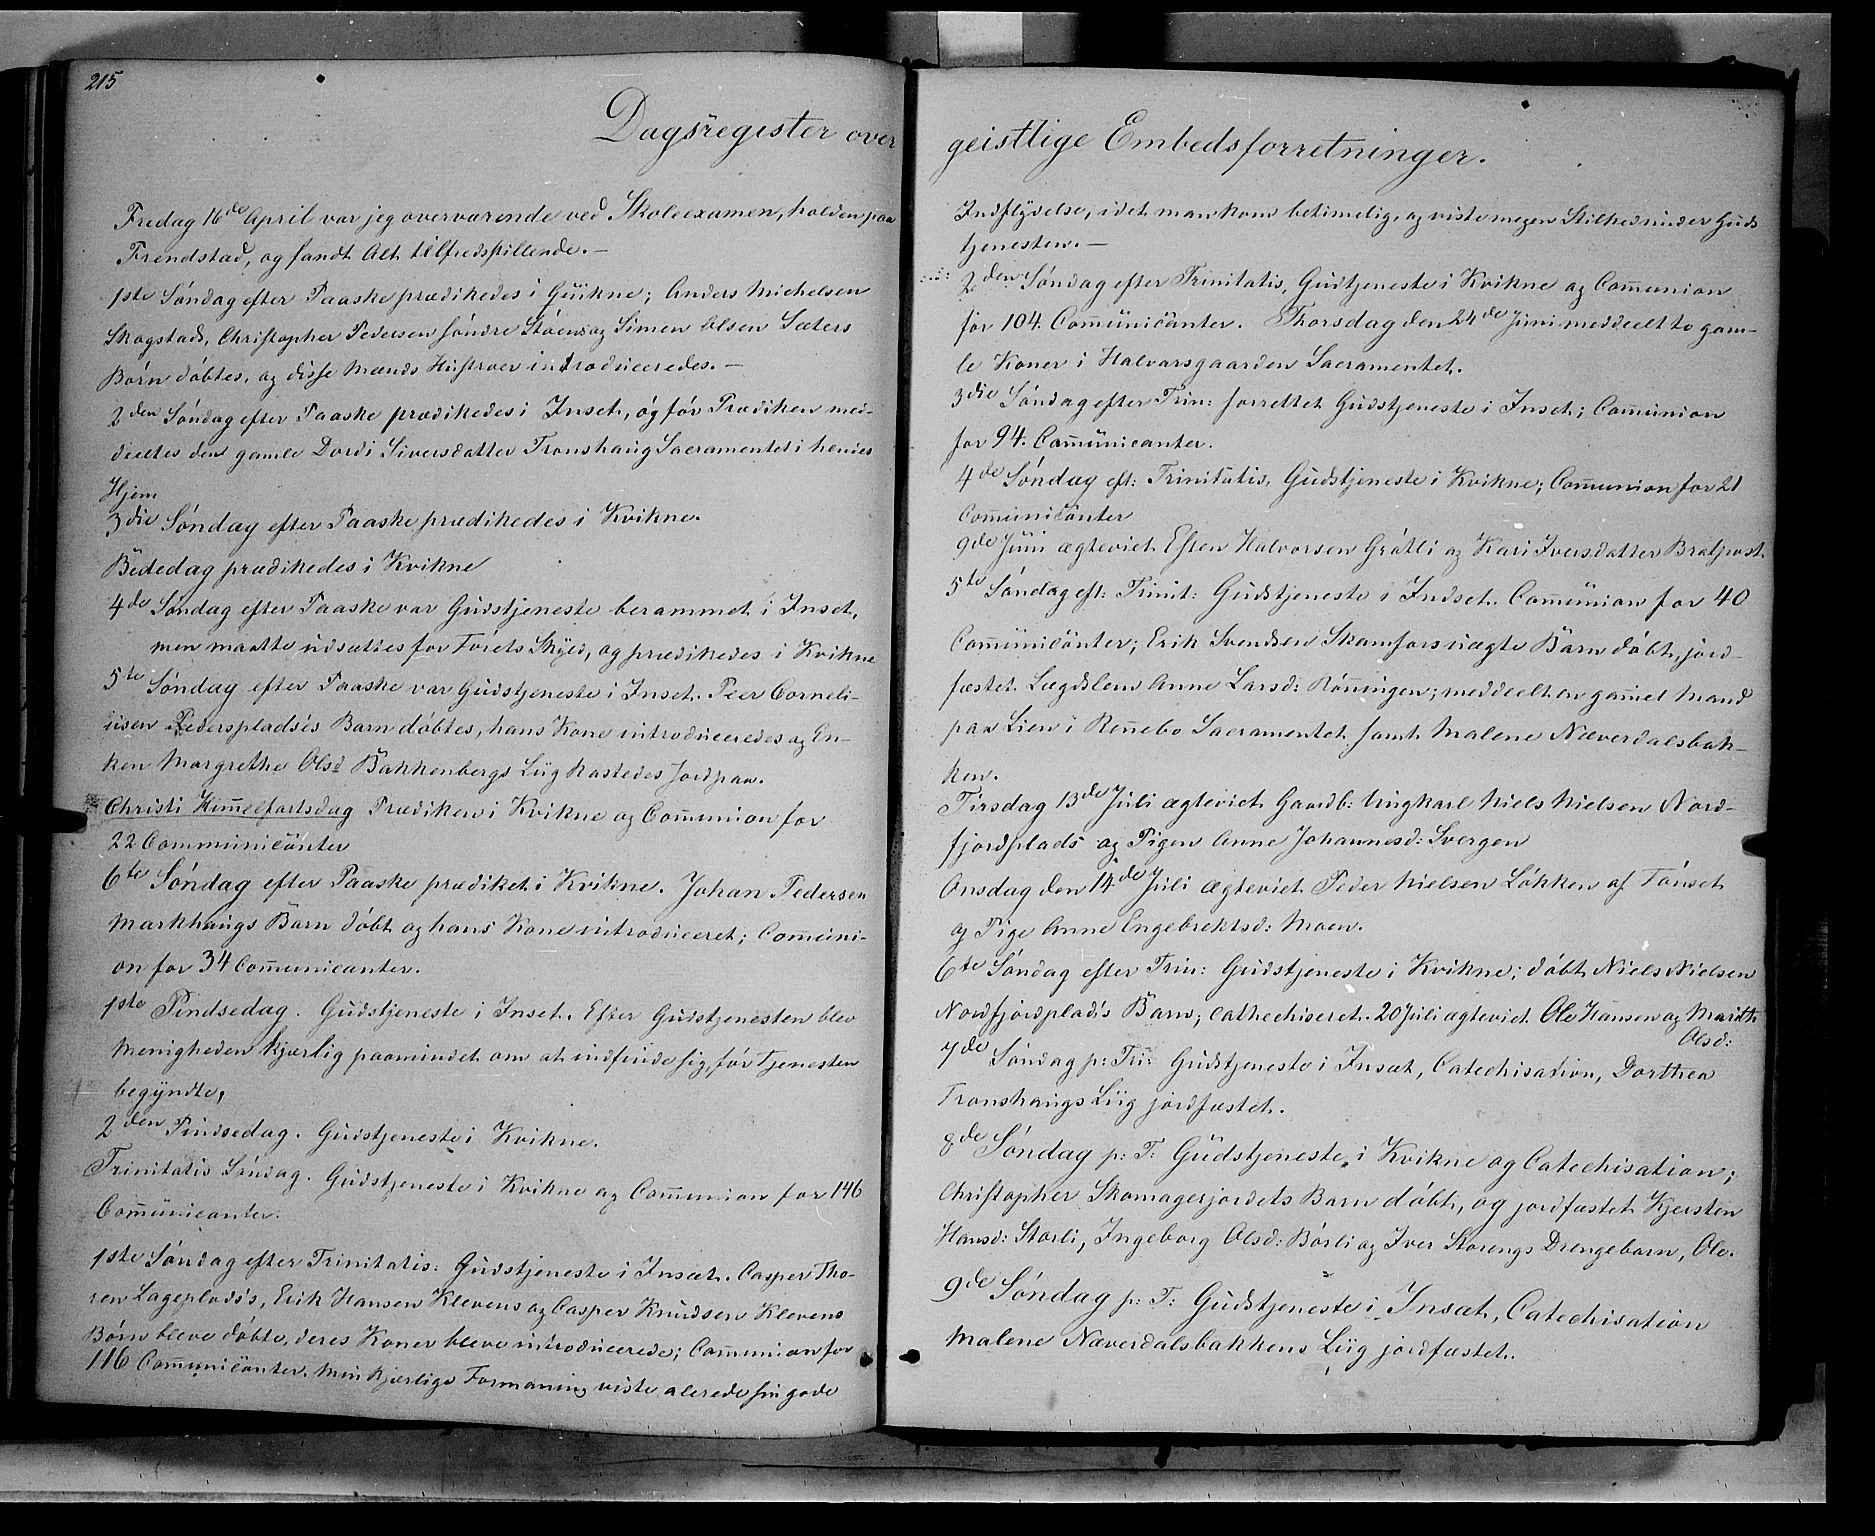 215
Dagsregister over
Fredag 16de April var jeg overværende ved Skoleexamen, holden paa
Frendstad, og fandt Alt tilfredsstillende. —
1ste Søndag efter Paaske prædikedes i Qüikne; Anders Michelsen
Skogstads, Christopher Pedersen søndre Støens og Simen Olsen Sæters
Børn døbtes, og disse Mænds Hustruer introduceredes. —
2den Søndag efter Paaske prædikedes i Inset, og før Prædiken med-
deeltes den gamle Dordi Siversdatter Tronshaug Sacramentet i hendes
Hjem
3die Søndag efter Paaske prædikedes i Kvikne.
Bededag prædikedes i Kvikne
4de Søndag efter Paaske var Gudstjeneste berammet i Inset,
men maatte udsættes for Førets Skyld, og prædikedes i Kvikne
5te Søndag efter Paaske var Gudstjeneste i Inset. Peer Corneli-
usen Pederspladsès Barn døbtes, hans Kone introduceredes og En-
ken Margrethe Olsd Bakkenbergs Liig kastedes Jord paa.
Christi Himmelfartsdag Prædiken i Kvikne og Communion for
22 Communicanter
6te Søndag efter Paaske prædiket i Kvikne. Johan Pedersen
Markhaugs Barn døbt og hans Kone introduceret; Communi-
on for 34 Communicanter.
1ste Pindsedag. Gudstjeneste i Inset. Efter Gudstjenesten blev
Menigheden kjærlig paamindet om at indfinde sig, før Tjenesten
begyndte,
2den Pindsedag. Gudstjeneste i Kvikne.
Trinitatis Søndag. Gudstjeneste i Kvikne og Communion for 146
Communicanter.
1ste Søndag efter Trinitatis: Gudstjeneste i Insæt. Casper Tho-
ren Lageplads's, Erik Hansen Klevens og Casper Knudsen Klevens
Børn bleve døbte, deres Koner bleve introducerede; Communion for
116 Communicanter. Min kjærlige Formaning viste alerede sin gode
geistlige Embedsforretninger.
Indflydelse, idet man kom betimelig, og viste megen Stilhed under Guds
tjenesten. —
2den Søndag efter Trinitatis, Gudtjeneste i Kvikne og Communion
for 104. Communicanter. Thorsdag den 24de Juni meddeelt to gam-
le Koner i Halvarsgaarden Sacramentet.
3die Søndag efter Trin: forrettet Gudstjeneste i Inset; Communion
for 94. Communicanter.
4de Søndag eft: Trinitatis, Gudstjeneste i Kvikne; Communion for 21
Communicanter
9de Juli ægteviet Esten Halvorsen Gråtli og Kari Iversdatter
5te Søndag eft: Trinit: Gudstjeneste i Indset. Communion for 40
Communicanter; Erik Svendsen Skamfers uægte Barn døbt, jord-
fæstet Lægdslem Anne Larsd: Rønningen; meddeelt en gammel Mand
paa Lien i Rennebo Sacramentet samt Malene Næverdalsbak-
ken.
Tirsdag 13de Juli ægteviet Gaardb: Ungkarl Niels Nielsen Nord-
fjordplads og Pigen Anne Johannesd: Svergen
Onsdag den 14de Juli ægteviet Peder Nielsen Løkken af Tønset
og Pige Anne Engebrektsd: Moen.
6te Søndag efter Trin: Gudstjeneste i Kvikne; døbt Niels Nielsen
Nordfjordplads's Barn; cathechiseret. 20 Juli ægteviet Ole Hansen og Marith
Olsd:
7de Søndag p: Tri: Gudstjeneste i Insæt, Catechisation, Dorthea
Tronshaugs Liig jordfæstet.
8de Søndag p: T: Gudstjeneste i Kvikne og Catechisation;
Christopher Skomagerjordets Barn døbt, og jordfæstet Kjersten
Hansd: Storli, Ingeborg Olsd: Børli og Iver Storengs Drengebarn, Ole.
9de Søndag p: T: Gudstjeneste i Insæt, Catechisation
Malene Næverdalsbakkens Liig jordfæstet.